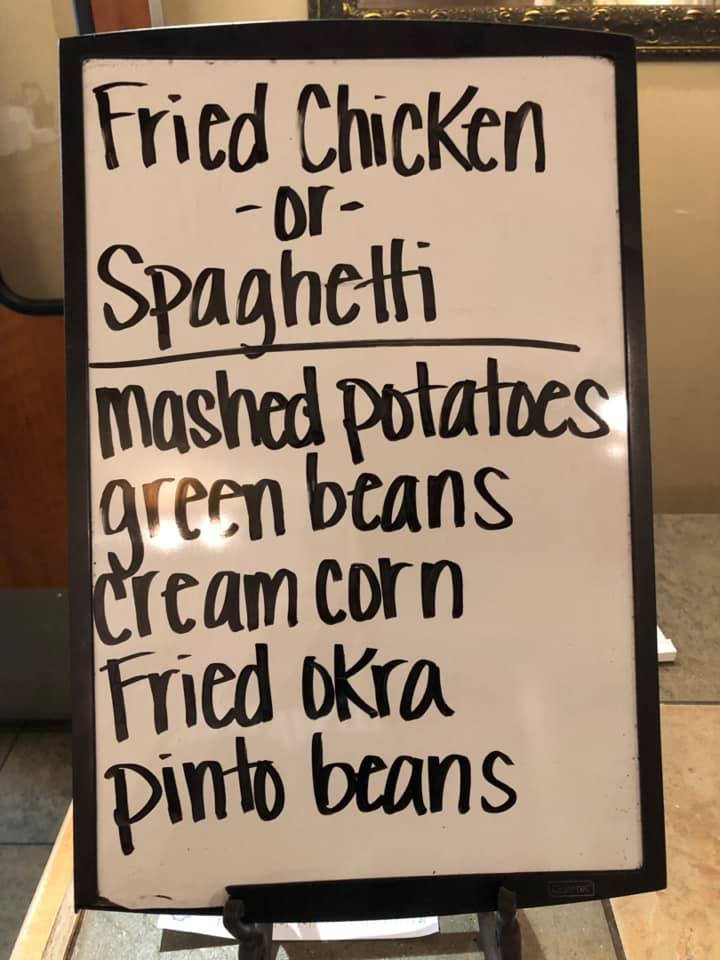 Fried Chicken
-or-
Spaghetti
mashed potatoes
green beans
cream corn
Fried okra
pinto beans